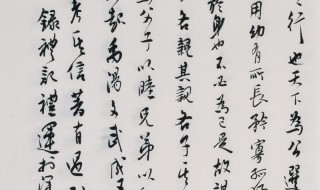 行也天下為公選
用幼有所長矜寡孤
於身也不必為己是故謀
各親其親各子其
父子以睦兄弟以
起禹湯文武成王
考其信著有過刑
錄禮記禮運